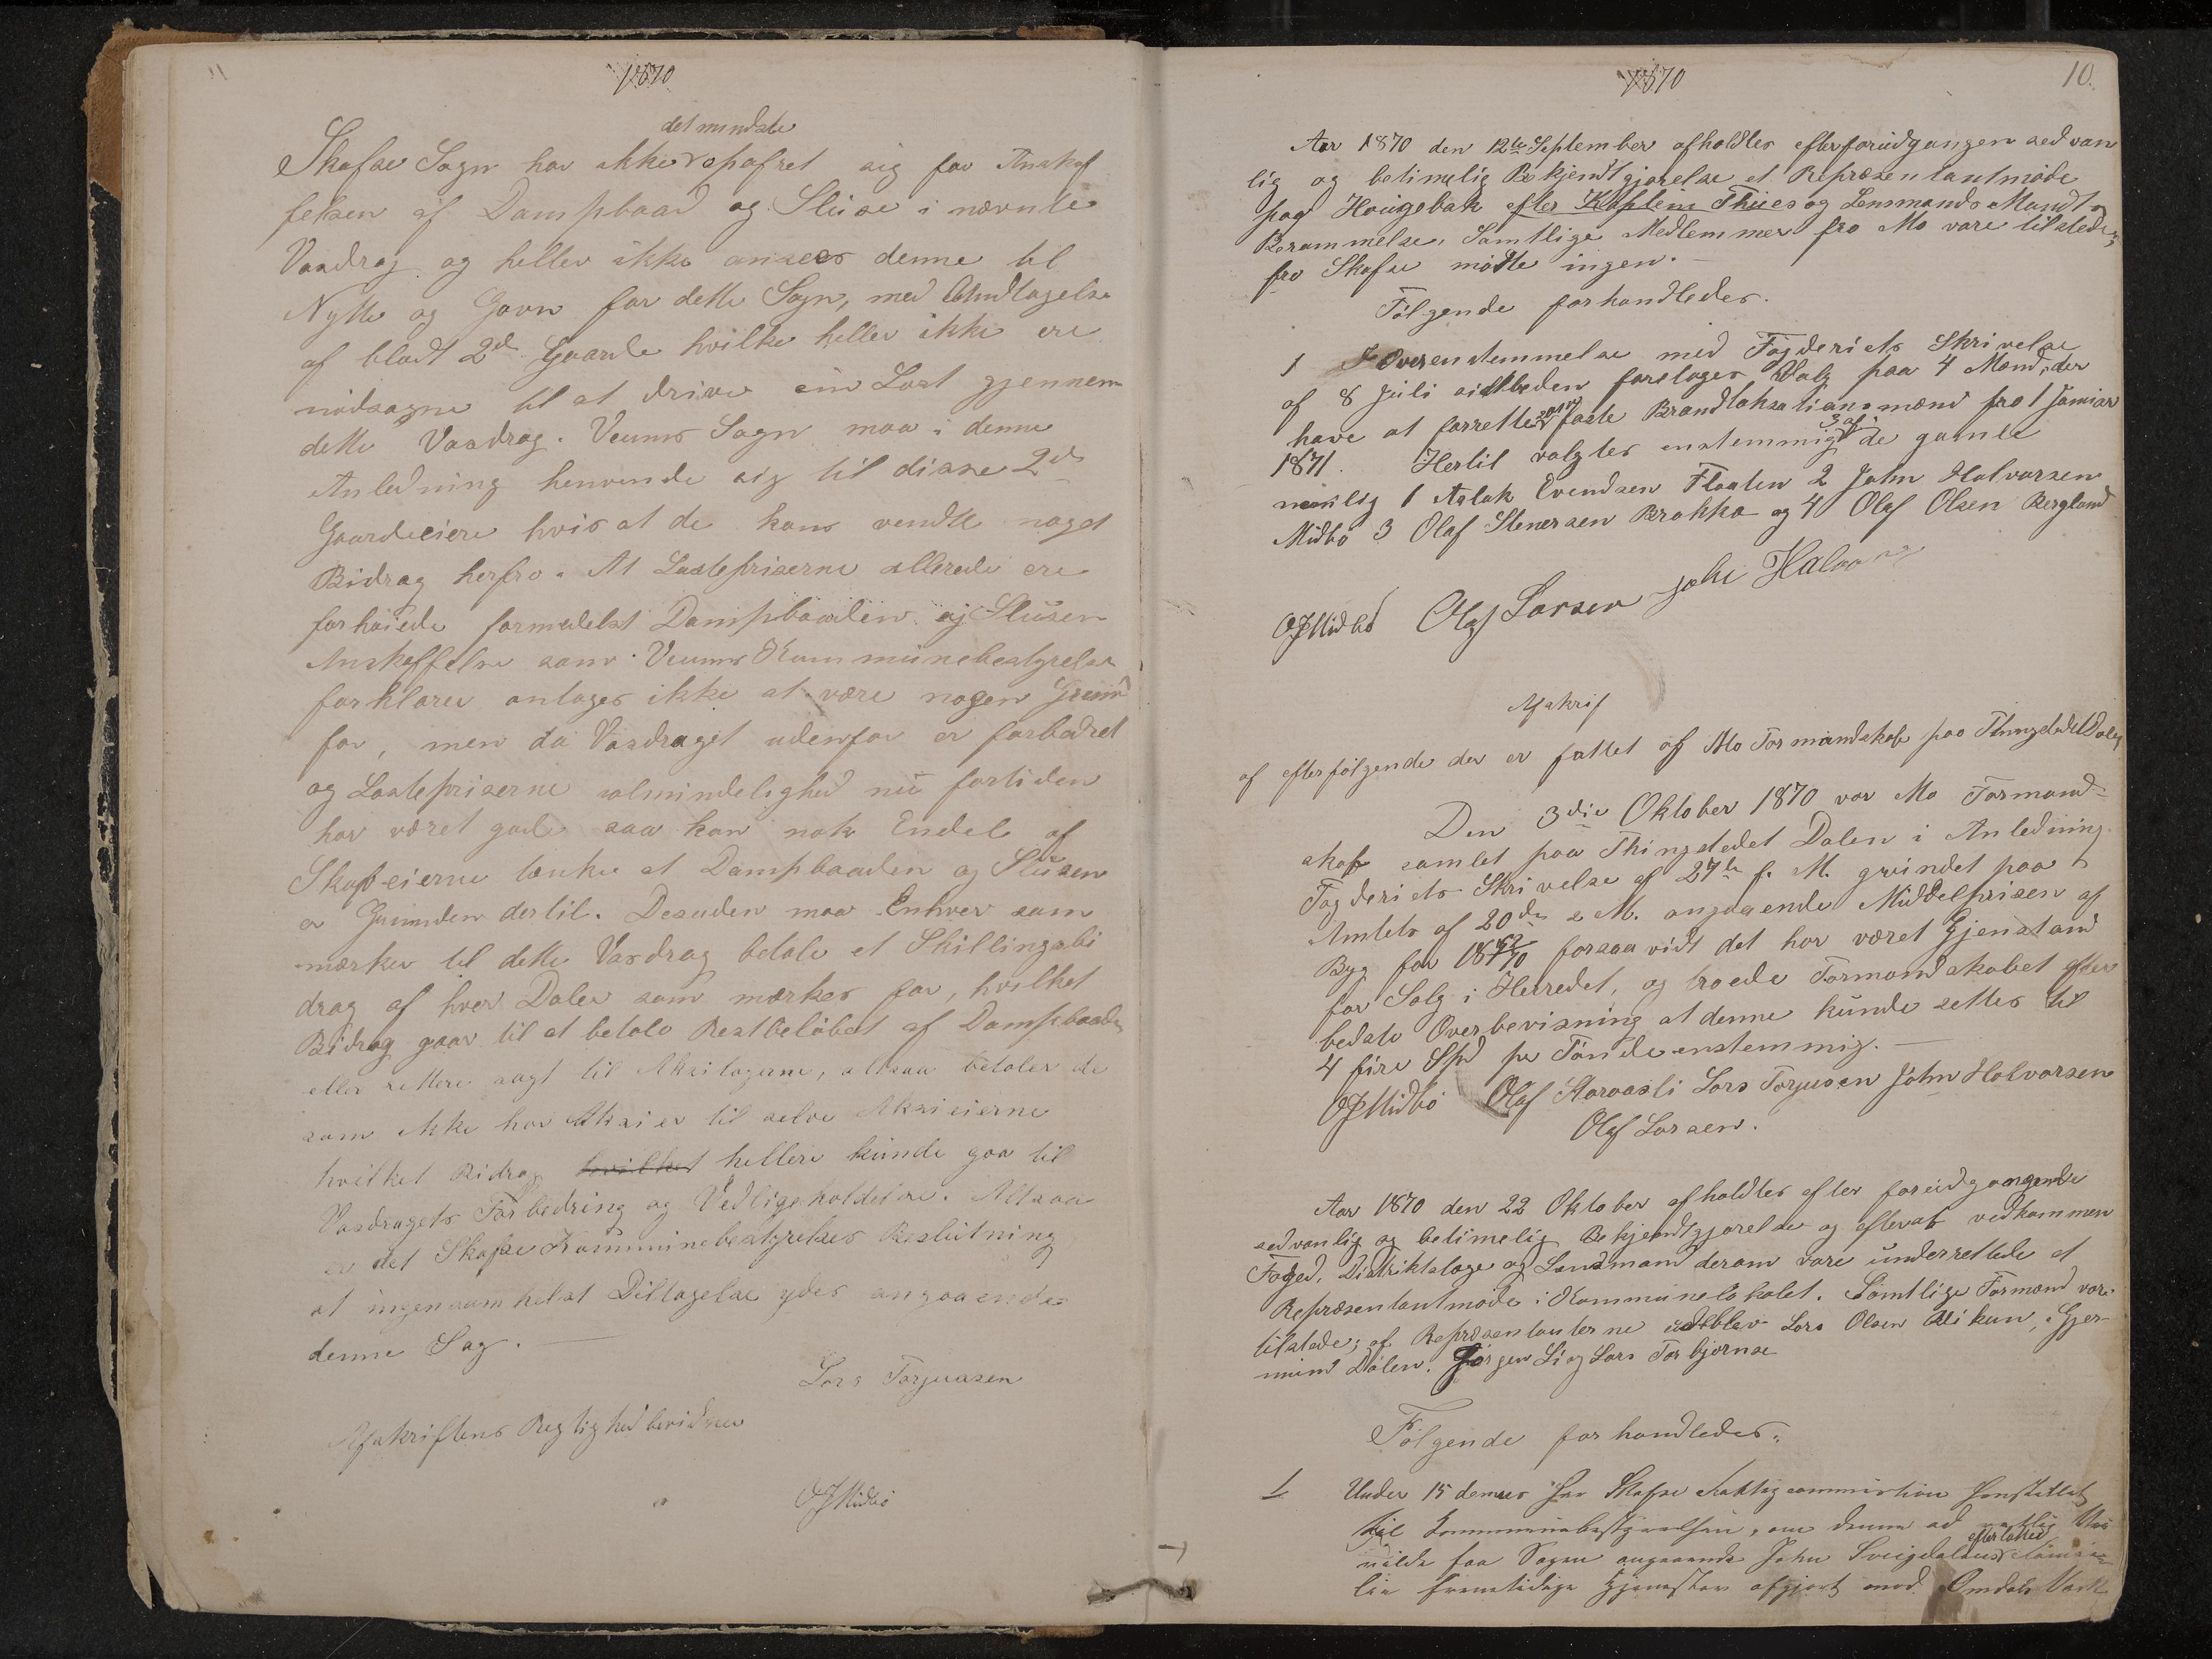 1870
det mindste
Skafse Sogn har ikke opofret sig for Anskaf
felsen af Dampbaad og Sluse i nævnte
Vasdrag og heller ikke ansees denne til
Nytte og Gavn for dette Sogn, med Undtagelse
af blodt 2de Gaarde hvilke heller ikke ere
nødsagne til at drive sin Last gjennem
dette Vasdrag. Veums Sogn maa i denne
Anledning henvende sig til disse 2de
Gaardeiere hvis at de kans vendte noget
Bidrag herfra. At Lastepriserne allerede ere
forhøiede formedelst Dampbaaden og Slusen
Anskaffelse som Veums Kommunebestyrelse
forklarer antages ikke at være nogen Grund
for, men da Vasdraget udenfor er forbedret
og Lastepriserne almindelighed nu fortiden
har været gode saa kan nok Endel af
Skogeierne tænke at Dampbaaden og Slusen
er Grunden dertil. Desuden maa Enhver som
mærker til dette Vasdrag betale et Skillingsbi
drag af hver Daler som mærkes for, hvilket
Bidrag gaar til at betale Restbeløbet af Dampbaaden
eller rettere sagt til Aksitagerne, altsaa betaler de
som ikke har Aksier til selve Aksieierne
hvilket Bidrag hvilket hellere kunde gaa til
Vasdragets Forbedring og Vedligeholdelse. Altsaa
er det Skafse Kommunebestyrelses Beslutning
at ingensomhelst Diltagelse ydes angaaende
denne Sag.
Lars Torjussen
Afskriftens Rigtighed bevidner
OJMidbø
1870
10.
Aar 1870 den 12te September afholdtes efterforudgangen sedvan
lig og betimelig Bekjendtgjørelse et Repræsentantmøde
paa Haugebak efter Kaplein Thues og Lensmands Mandt
Berammelse. Samtlige Medlemmer fra Mo vare tilstede,
fra Skafse mødte ingen.
Følgende forhandledes.
1 I Overenstemmelse med Fogderiets Skrivelse
af 8 Juli sidstleden foretoges Valg paa 4 Mænd, der
have at forrette som faste Brandtaksationsmænd fra 1 Januar
1871. Hertil valgtes enstemmig 3 af de gamle
nemlig 1 Aslak Evendsen Flaaten 2 John Halvorsen
Midbø 3 Olaf Stenersen Brokka og 4 Olaf Olsen Bergland
OJMidbø Olaf Larsen John Halvorsen
Afskrif
af efterfølgende der er fattet af Mo Formandskab paa Thingstedet Dalen
Den 3die Oktober 1870 var Mo Formand-
skab samlet paa Thingstedet Dalen i Anledning
Fogderiets Skrivelse af 27de f. M. grundet paa
Amtets af 20de s M. angaaende Middelprisen af
Byg for 1869/70 forsaavidt det har været Gjenstand
for Salg i Herredet, og troede Formandskabet efter
bedste Overbevisning at denne kunde settes til
4 fire Spd pr Tønde enstemmig.
OJMidbø Olaf Storaasli Lars Torjusen John Halvorsen
Olaf Larsen.
Aar 1870 den 22 Oktober afholdtes efter forudgaangende
sedvanlig og betimelig Bekjendtgjørelse og efterat vedkommen
Foged, Distriktslæge og Lensmand derom vare underrettede et
Repræsentantmøde i Kommunelokalet. Samtlige Formænd vare
tilstede; af Repræsentanterne udeblev Lars Olsen Vikun, Gjer-
mund Dalen. Jørgen Li og Lars Torbjørnse
Følgende forhandledes.
1. Under 15 dennes har Skafse Fattigcommission henstillet
til Kommunebestyrelsen, om denne
vilde faa Sagen angaaende John Sveigdalens efterladte
fremtidige afgjort mod Omdals Værk